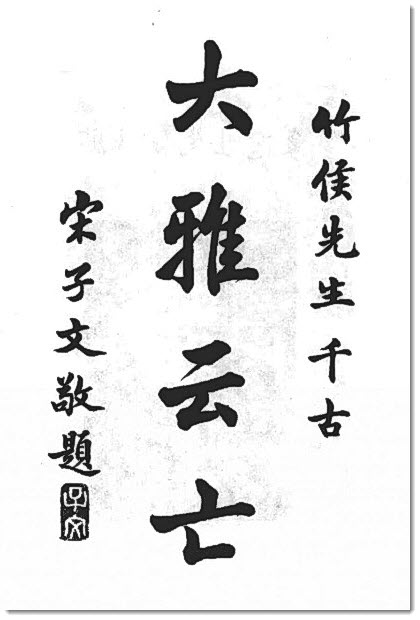 竹侯先生千古
大雅云亡
宋子文敬題
子文